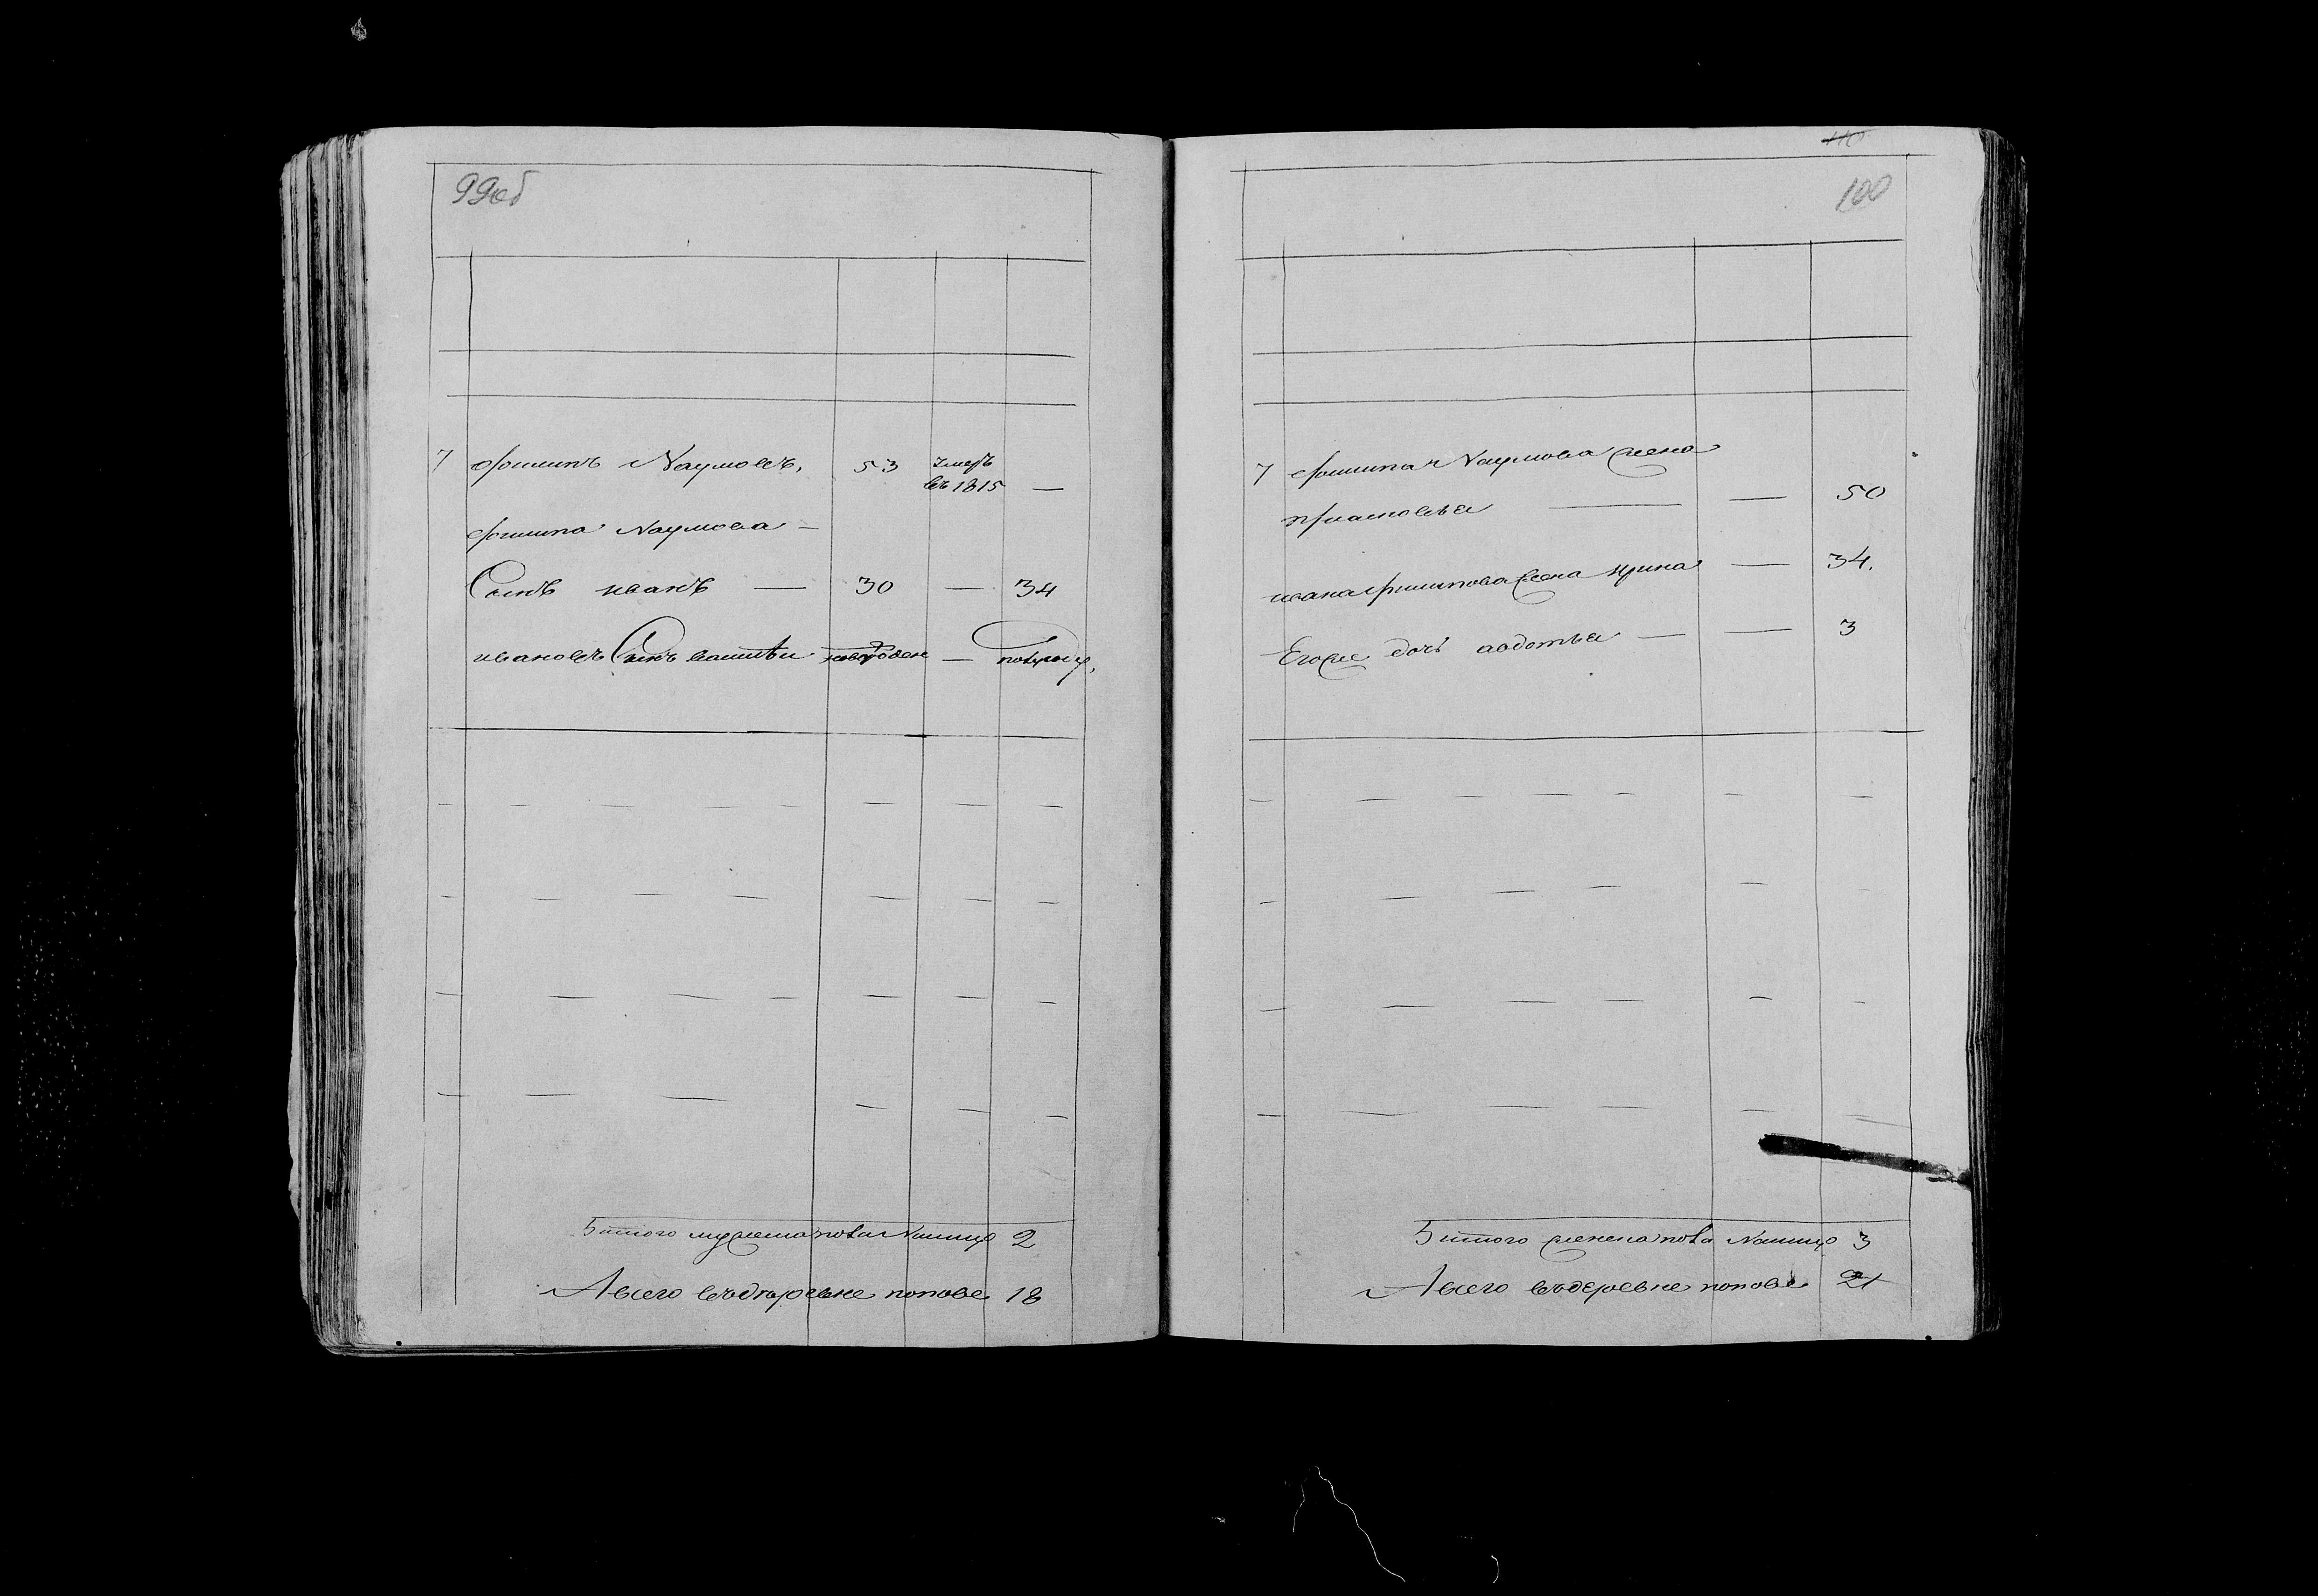 99об
7 филипъ Наумовъ, 53 умеръ
въ 1815 —
филипа Наумова —
Сынъ иванъ — 30 — 34
ивановъ Сынъ василѣи новорожден — полугоду,
5 итого мужеска пола Налицо 2
А всего въ деревне попове 18
110
100
7 филипа Наумова жена
прасковья — — 50
ивана филипова жена ирина — 34.
Егоже дочь авдотья — — 3
5 итого женска пола Налицо 3
А всего въ деревне попове 21